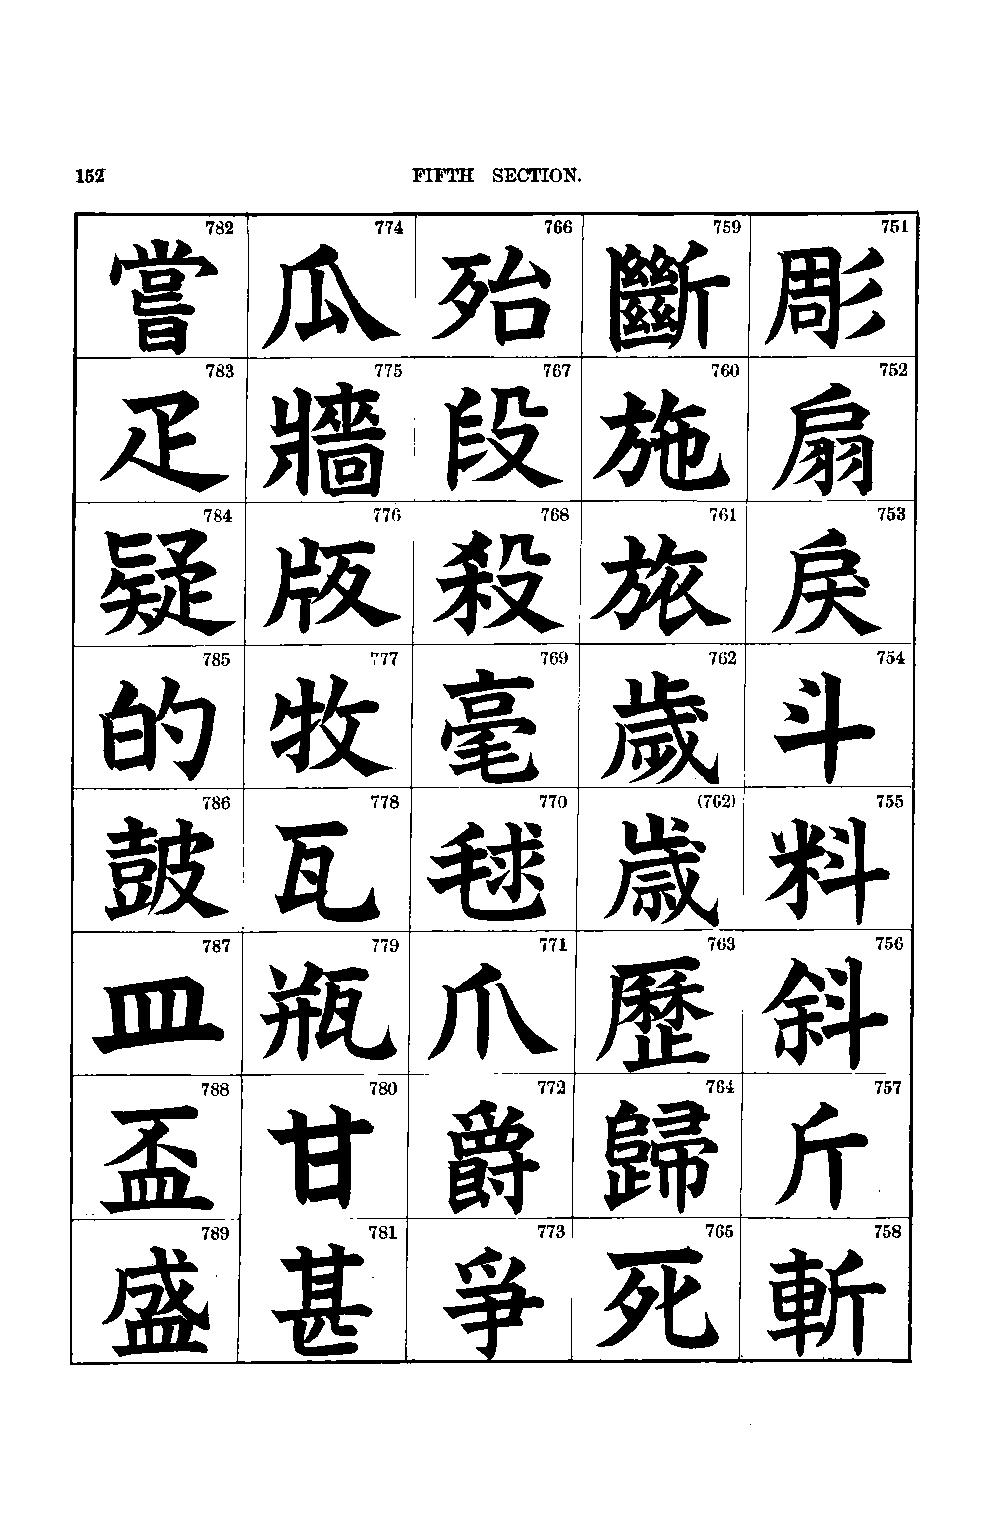 152 FIFTH SECTION.
751 彫
752 扇
753 戾
754 斗
755 料
756 斜
757 斤
758 斬
759 斷
760 施
761 旅
762 歲
(762) 歳
763 歷
764 歸
765 死
766 殆
767 段
768 殺
769 毫
770 毬
771 爪
772 爵
773 爭
774 瓜
775 牆
776 版
777 牧
778 瓦
779 瓶
780 甘
781 甚
782 甞
783 疋
784 疑
785 的
786 皷
787 皿
788 盃
789 盛